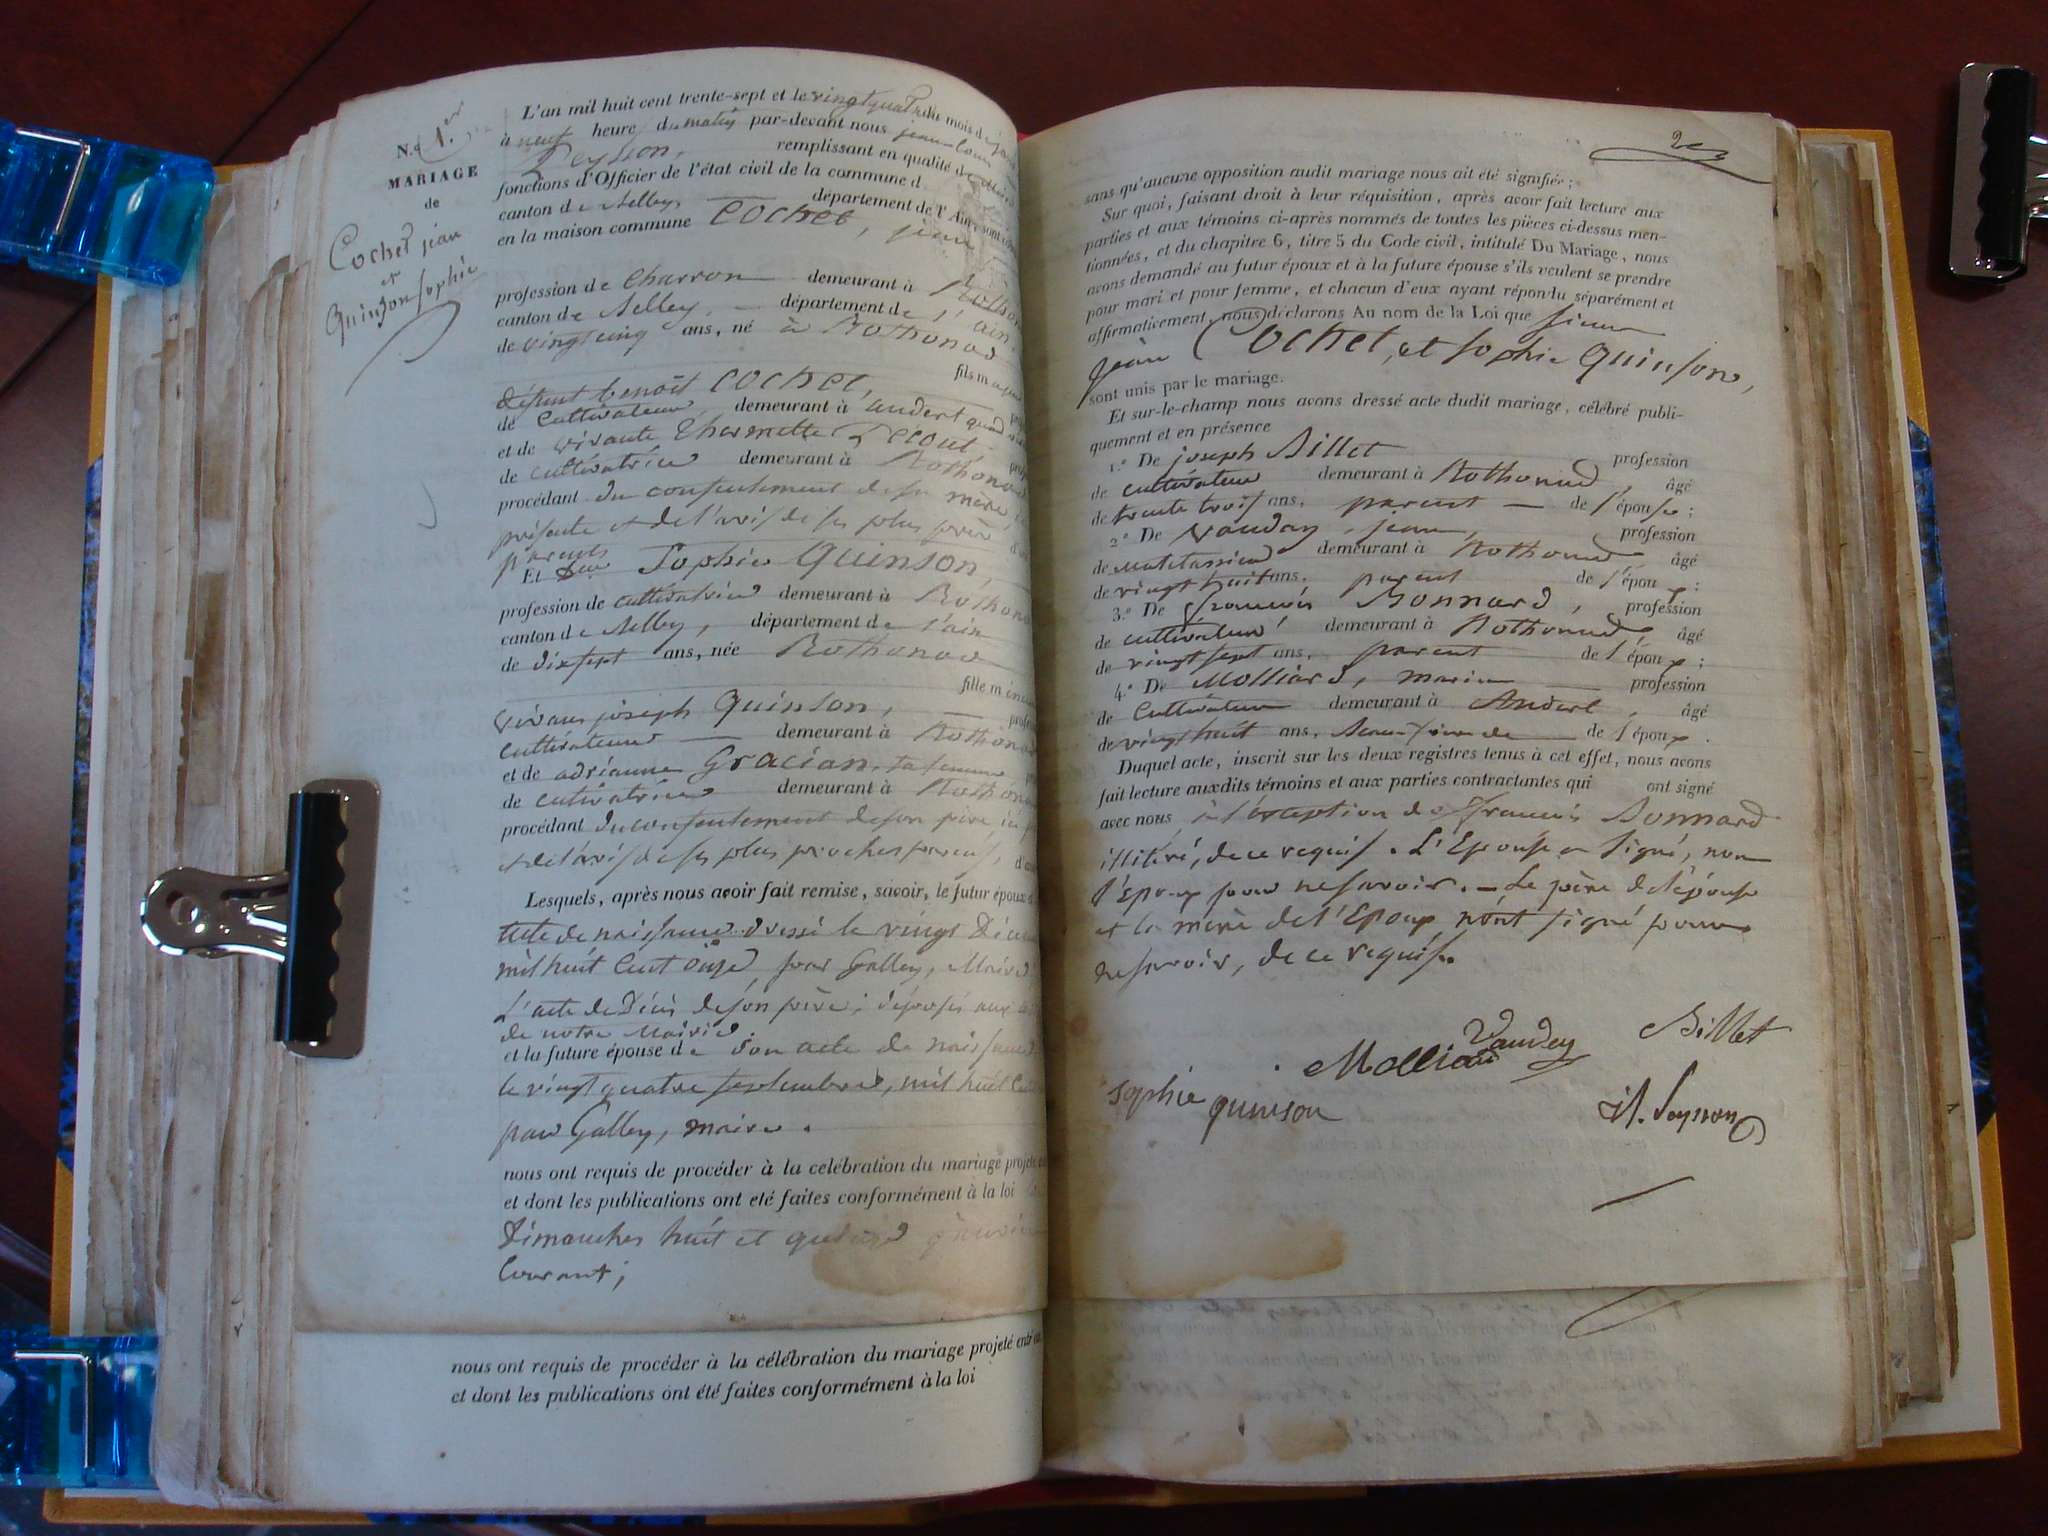 N.º 1.er
MARIAGE
de
Cochet jean
et
Quinson sophie
L'an mil huit cent trente-sept et le vingtquatre du mois de
à neuf heure du matin par-devant nous jean-louis
Peysson, remplissant en qualité de Maire
fonctions d'Officier de l'état civil de la commune d
canton de Belley, département de l'Ain
en la maison commune Cochet, jean
profession de Charron demeurant à
canton de Belley, département de l'ain.
de vingtcinq ans, né à Rothonod
fils majeur
défunt benoît Cochet,
de Cultivateur, demeurant à andert quand
et de vivante
de cultivatrice demeurant à Rothonod
procédant du consentement de sa mère,
présente et de l'avis de ses plus
parents
Et Sophie Quinson,
profession de cultivatrice demeurant à
canton de Belley, département de l'ain
de dixsept ans, née Rothonod
fille
vivans joseph Quinson,
cultivateur demeurant à
et de adrianne Gracian, sa femme,
de cutivatrice demeurant à
procédant du consentement de son père
et de l'avis de ses plus proches parens,
Lesquels, après nous avoir fait remise, savoir, le futur époux
acte de naissance dressé le vingt
mil huit Cent onze, par Galley, Maire
L'acte de Décès de son père; déposés aux
de notre Mairie.
et la future épouse de son acte de naissance
le vingt quatre septembre, mil huit
par Galley, maire.
nous ont requis de procéder à la celébration du mariage projeté
et dont les publications ont eté faites conformément à la loi
Dimanches huit et quinze
Courant;
nous ont requis de procéder à la célébration du mariage projeté
et dont les publications ont été faites conformément à la loi
sans qu'aucune opposition audit mariage nous ait été signifiée;
Sur quoi, faisant droit à leur réquisition, après avoir fait lecture aux
parties et aux témoins ci-après nommés de toutes les pièces ci-dessus men-
tionnées, et du chapitre 6, titre 5 du Code civil, intitulé Du Mariage, nous
avons demandé au futur époux et à la future épouse s'ils veulent se prendre
pour mari et pour femme, et chacun d'eux ayant répondu séparément et
affirmativement, nous déclarons Au nom de la Loi que sieur
jean Cochet, et sophie Quinson,
sont unis par le mariage.
Et sur-le-champ nous avons dressé acte dudit mariage, célébré publi-
quement et en présence
1.º De joseph Billet profession
de cultivateur demeurant à Rothonod, âgé
de trente trois ans, parent de l'épouse;
2.º De Vauday, jean, profession
de demeurant à Rothonod âgé
de vingt huit ans. parent de l'époux;
3.º De françois Bonnard, profession
de cultivateur demeurant à Rothonod, âgé
de vingt sept ans, parent de l'époux;
4.º De Molliard, marin profession
de Cultivateur demeurant à Andert, âgé
de vingt huit ans, de l'époux.
Duquel acte, inscrit sur les deux registres tenus à cet effet, nous avons
fait lecture auxdits témoins et aux parties contractantes qui ont signé
avec nous à l'exception de françois Bonnard
illitéré, de ce requis. L'Epouse a signé, non
l'Epoux pour ne savoir. — Le père de l'épouse
et la mère de l'Epoux n'ont signé pour
ne savoir, de ce requis.
Vauday Billet
Molliard
sophie quinson